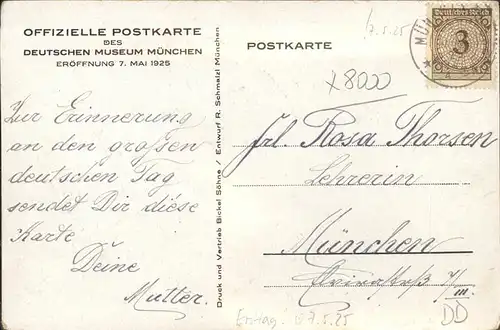 OFFIZIELLE POSTKARTE
DES
DEUTSCHEN MUSEUM MÜNCHEN
ERÖFFNUNG 7. MAI 1925
Zur Erinnerung
an den großen
deutschen Tag
sendet Dir diese
Karte
Deine
Mutter.
Druck und Vertrieb Bickel Söhne / Entwurf R. Schmalzl München
POSTKARTE
7.5.25
Deutsches Reich
3
MÜN
x8000
Frl. Rosa Thorsen
Lehrerin
München
III
Erstag! 7.5.25
DD